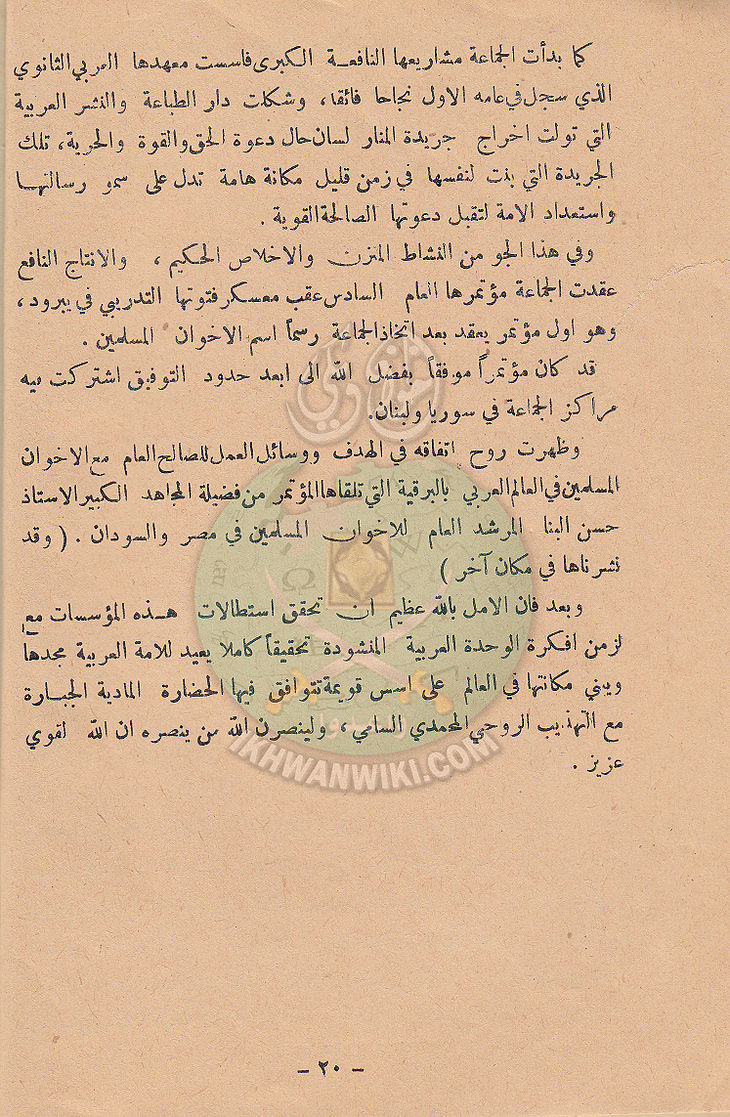 كما بدأت الجماعة مشاريعها النافعـة الكبرى فاسست معهدها العربي الثانوي
الذي سجل في عامه الاول نجاحا فائقا، وشكلت دار الطباعة والنشر العربية
التي تولت اخراج جريدة المنار لسان حال دعوة الحق والقوة والحرية، تلك
الجريدة التي بنت لنفسها في زمن قليل مكانة هامة تدل على سمو رسالتهـا
واستعداد الامة لتقبل دعوتها الصالحة القوية .
وفي هذا الجو من النشاط المتزن والاخلاص الحكيم ، والانتاج النافع
عقدت الجماعة مؤتمرها العام السادس عقب معسكر فتوتها التدريبي في يبرود،
وهو اول مؤتمر يعقد بعد اتخاذ الجماعة رسماً اسم الاخوان المسلمين .
قد كان مؤتمراً موفقاً بفضل الله الى ابعد حدود التوفيق اشتركت فيه
مراكز الجماعة في سوريا ولبنان.
وظهرت روح اتفاقه في الهدف ووسائل العمل للصالح العام مع الاخوان
المسلمين في العالم العربي بالبرقية التي تلقاها المؤتمر من فضيلة المجاهد الكبير الاستاذ
حسن البنا المرشد العام للاخوان المسلمين في مصر والسودان . ( وقد
نشرناها في مكان آخر )
وبعد فان الامل بالله عظيم ان تحقق استطالات هـذه المؤسسات مع
لزمن افكرة الوحدة العربية المنشودة تحقيقاً كاملا يعيد للامة العربية مجدها
ويبني مكانتها في العالم على اسس قويمة تتوافق فيها الحضارة المادية الجبـارة
مع التهذيب الروحي المحمدي السامي ، ولينصرن الله من ينصره ان الله لقوي
عزيز .
IKHWANWIKI.COM
- ٢٠ -